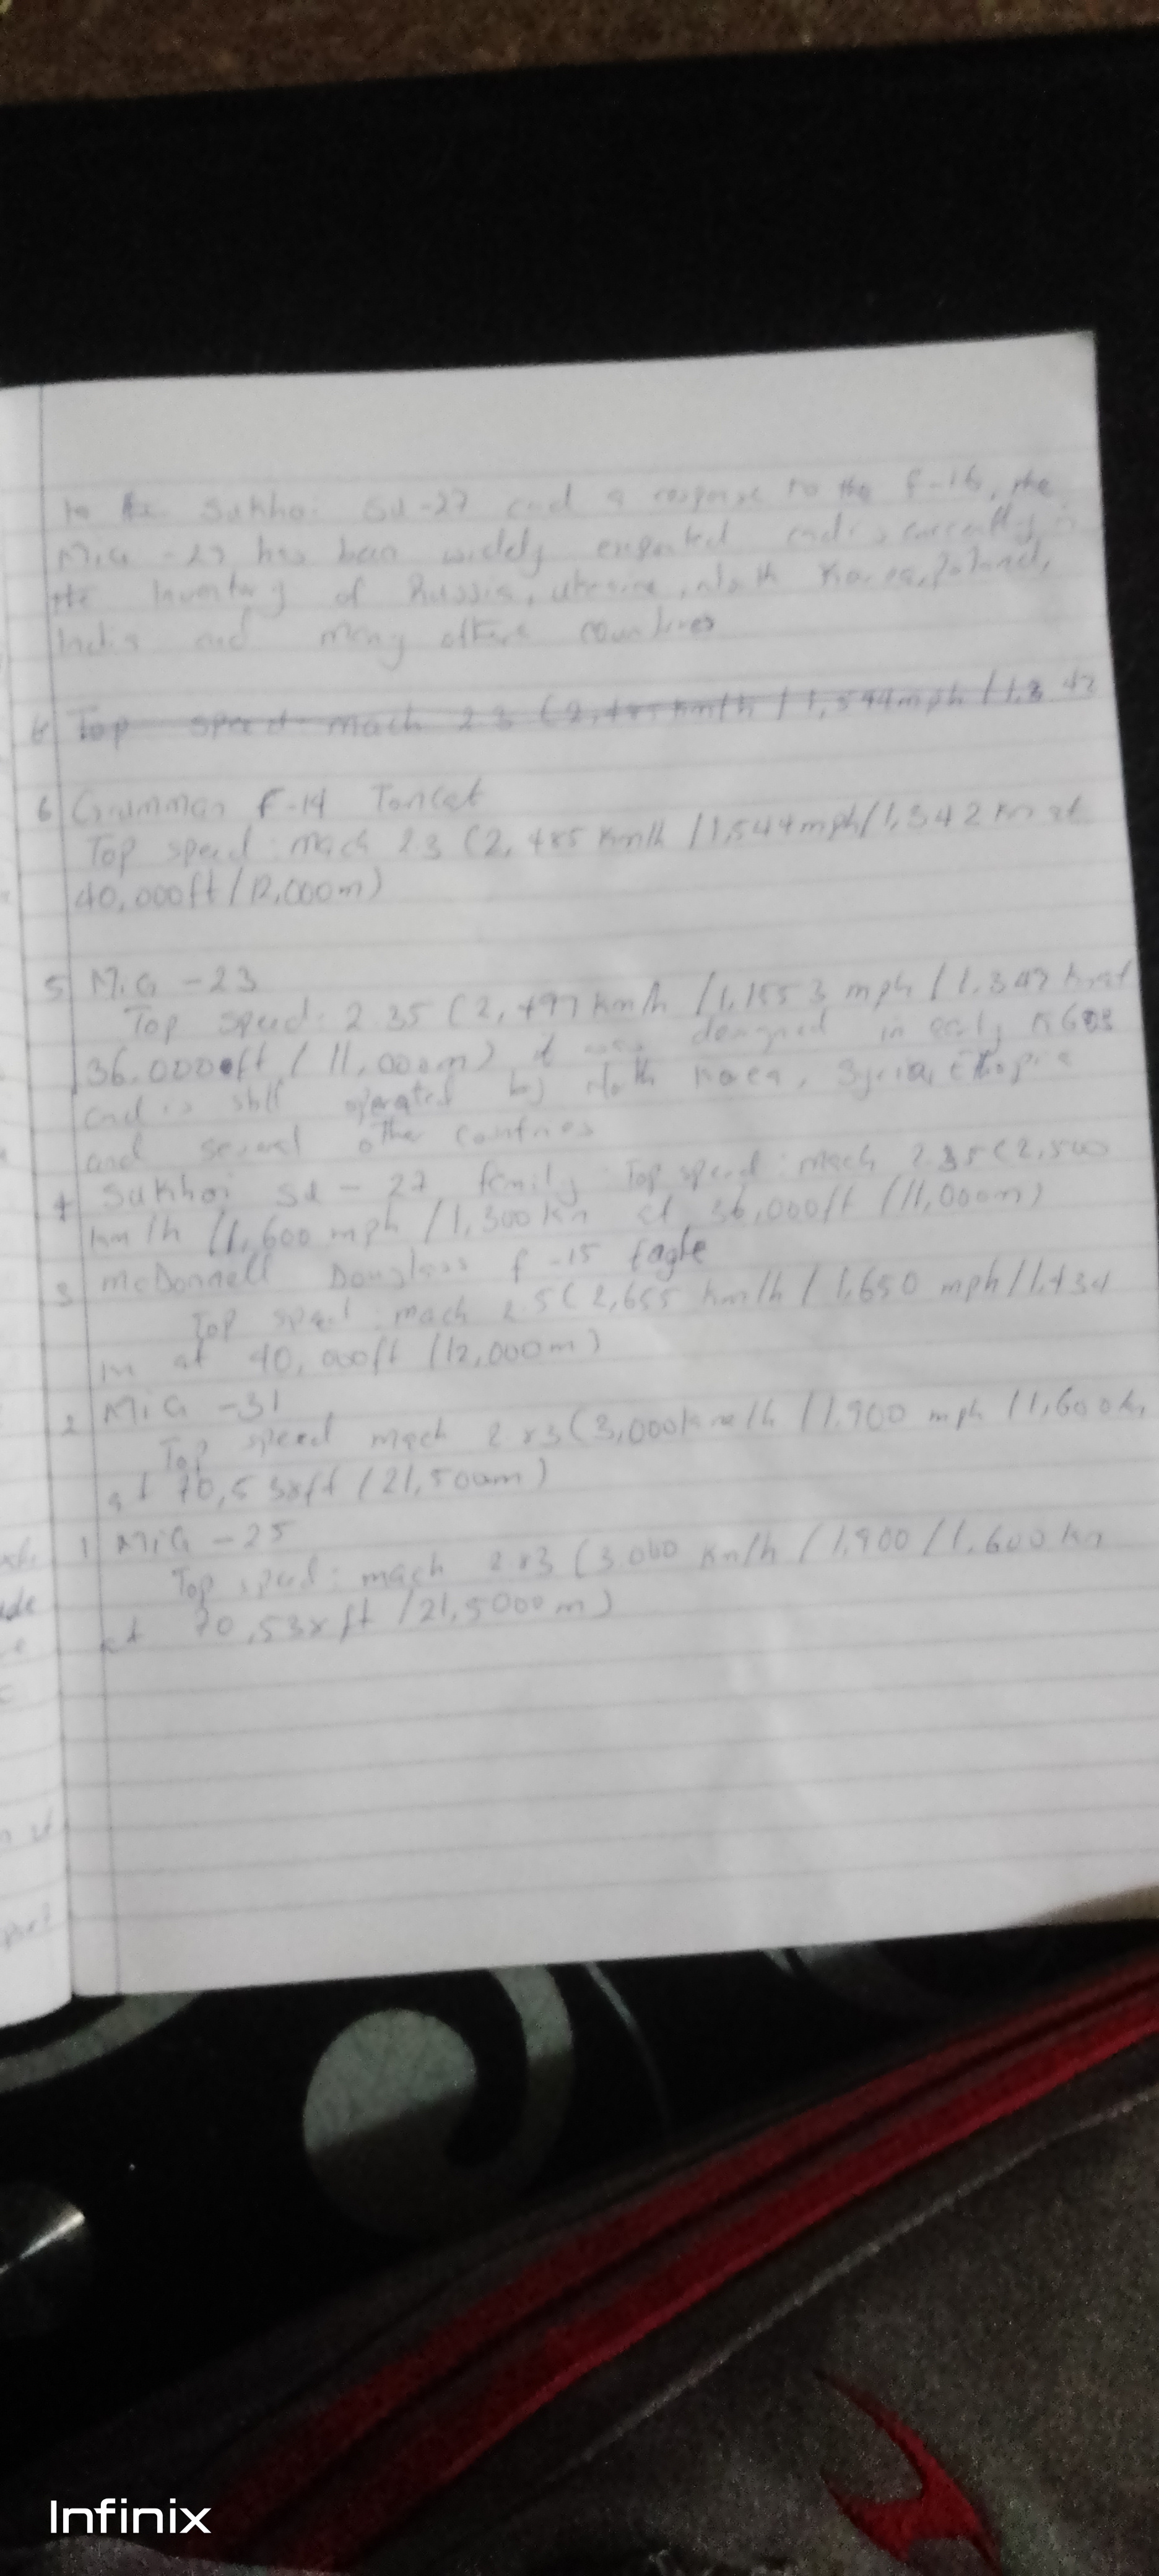 to the Sukhoi Su-27 and a response to the F-16, the
MiG -29 has been widely exported and is currently in
the inventory of Russia, Ukraine, North Korea, Poland,
India and many others countries
Top speed: mach 2.3 (2,485 km/h / 1,544mph / 1,3 42
6 Grumman F-14 Tomcat
Top speed: mach 2.3 (2,485 km/h / 1,544mph/1,342 Kn at
40,000ft / 12,000m)
5 MiG -23
Top speed: 2.35 (2,497 km/h / 1,1553 mph / 1,347 kn at
36,000ft / 11,000m) it was designed in early
and is still operated by North Korea, Syria, Ethiopia
and several other countries
4 Sukhoi Su - 27 family Top speed: mach 2.35 (2,500
km/h / 1,600 mph / 1,300 Kn at 36,000ft / 11,000m)
3 McDonnell Douglass F -15 Eagle
Top speed: mach 2.5 (2,655 km/h / 1,650 mph / 1,434
at 40,000ft / 12,000m)
2 MiG -31
Top speed mach 2 83 (3,000 km/h / 1,900 mph / 1,600 kn
at 70,538ft / 21,500m)
1 MiG -25
Top speed: mach 2 83 (3.000 Km/h / 1,900 / 1,600 kn
at 70,538 ft / 21,5000 m)
Infinix